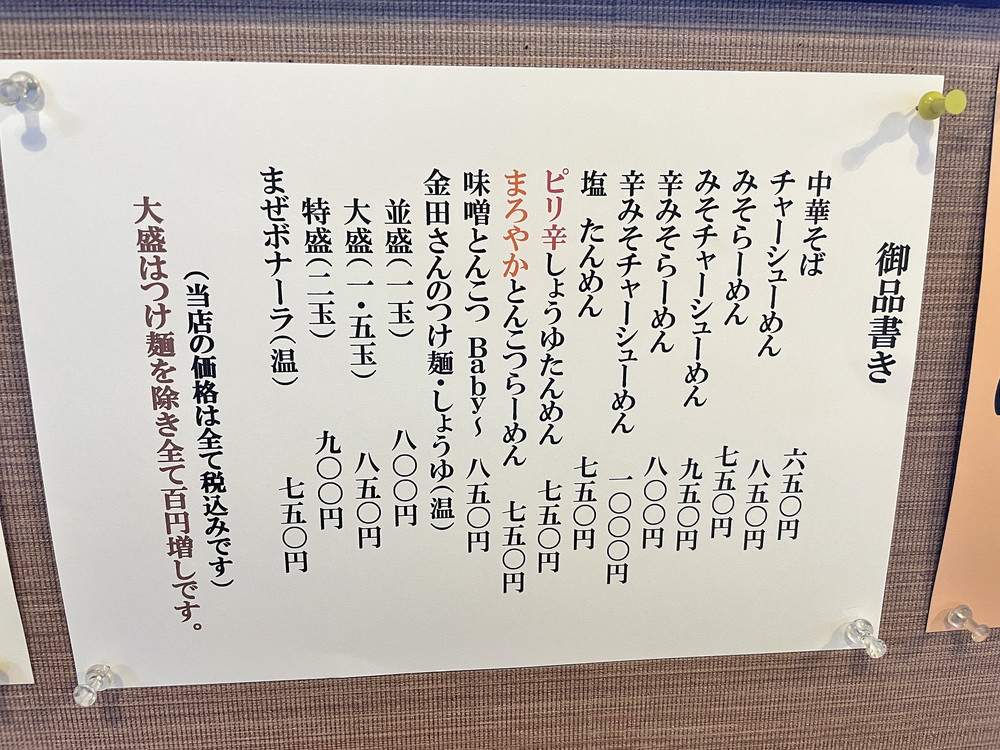 御品書き
中華そば 六五〇円
チャーシューめん 八五〇円
みそらーめん 七五〇円
みそチャーシューめん 九五〇円
辛みそらーめん 八〇〇円
辛みそチャーシューめん 一〇〇〇円
塩 たんめん 七五〇円
ピリ辛しょうゆたんめん 七五〇円
まろやかとんこつらーめん 七五〇円
味噌とんこつ Baby～ 八五〇円
金田さんのつけ麺・しょうゆ(温)
並盛(一玉) 八〇〇円
大盛(一・五玉) 八五〇円
特盛(二玉) 九〇〇円
まぜボナーラ(温) 七五〇円
(当店の価格は全て税込みです)
大盛はつけ麺を除き全て百円増しです。